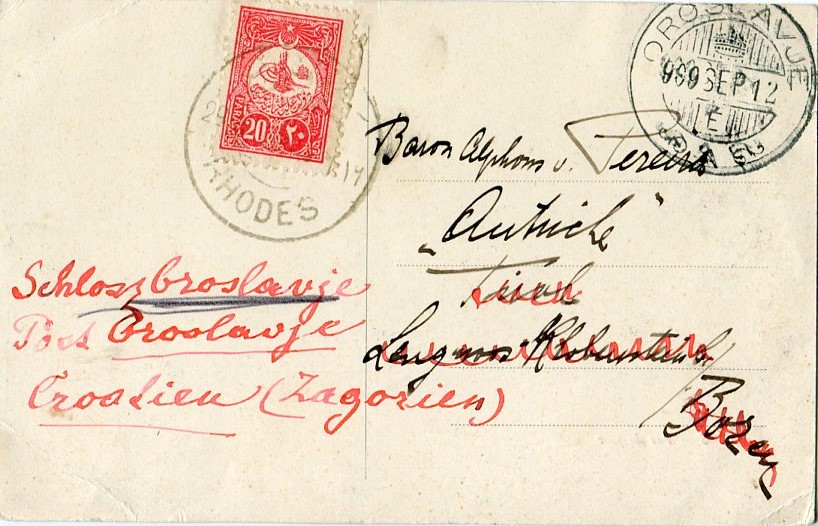 PARAS
20 ٢٠
RHODES
OROSLAVJE
909 SEP 12
E
Baron Alphons v. Pereira
„Autriche"
Tirol
Lengmos Klobenstein
Bozen
Schloss Oroslavje
Post Oroslavje
Croatien (Zagorien)